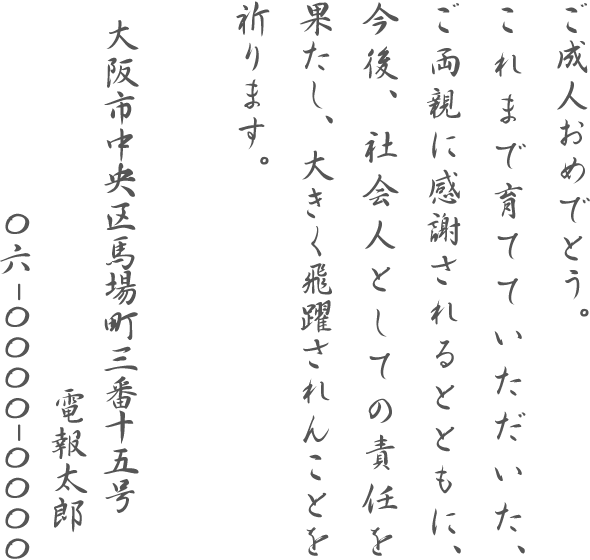 ご成人おめでとう。
これまで育てていただいた、
ご両親に感謝されるとともに、
今後、社会人としての責任を
果たし、大きく飛躍されんことを
祈ります。
大阪市中央区馬場町三番十五号
電報太郎
〇六−〇〇〇〇−〇〇〇〇